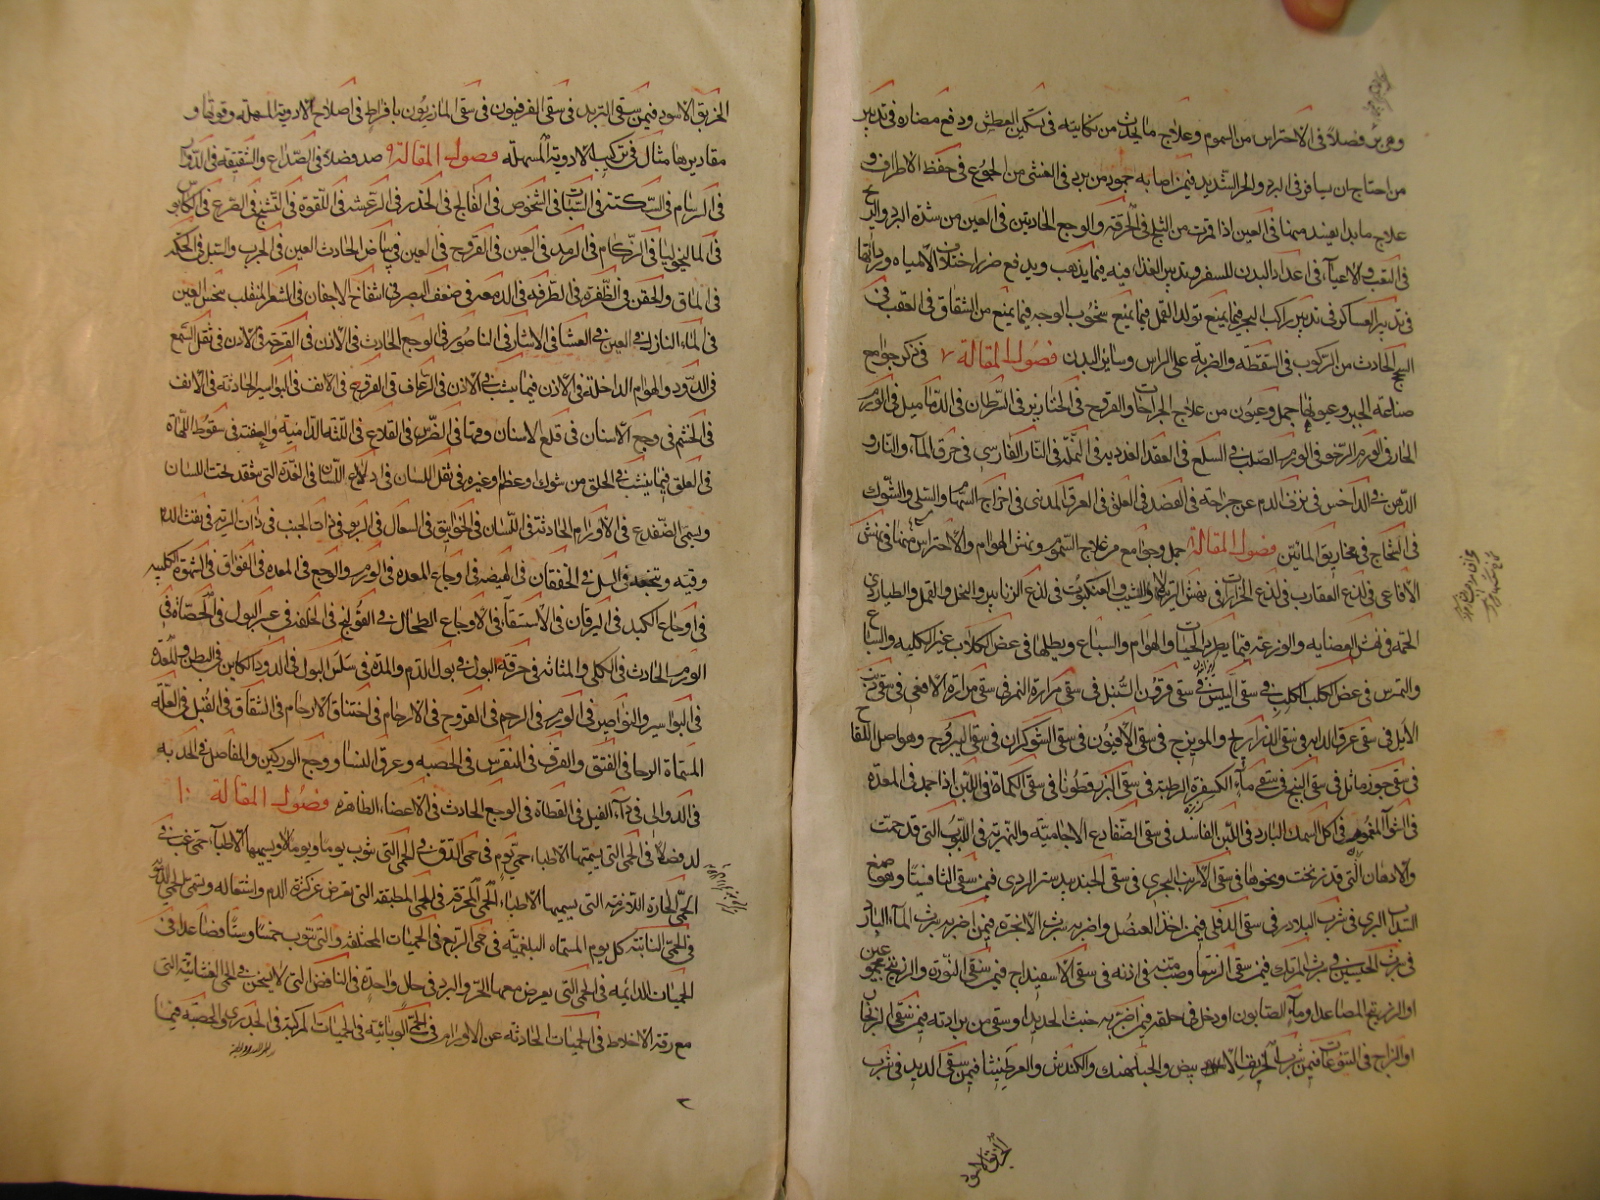 وعرين فصلا فى الاحتراس من السموم وعلاج ما يحدث من نكايته فى تسكين العطش ودفع مضاره فى تدبير
من احتاج ان يسافر فى البرد والحر الشديد فيمن اصابه جمود من برد فى الغشى من الجوع فى حفظ الاطراف و
علاج ما بدا يفسد منها فى العين اذا قمرت من الثلج فى الحرقة والوجع الحادثين فى العين من شدة البرد والريح
فى التعب والاعياء فى اعداد البدن للسفر وتدبير الغذاء فيه فيما يذهب ويدفع ضرر اختلاف الامياه ورداتها
فى تدبير العساكر فى تدبير راكب البحر فيما يمنع تولد القمل فيما يمنع شحوب الوجه فيما يمنع من الشقاق فى العقب فى
السحج الحادث من الركوب فى السقطة والضربة على الراس وساير البدن فصول المقالة ٧ فى ذكر جوامع
صناعة الجبر وعيونها جمل وعيون من علاج الجراحات والقروح فى الخنازير فى السرطان فى الدماميل فى الورم
الحار فى الورم الرخو فى الورم الصلب فى السلع فى العقد الغددية فى النملة فى النار الفارسى فى حرق الماء والنار و
الدهن فى الداخس فى نزف الدم عن جراحة فى الفصد فى العلق فى العرق المدنى فى اخراج السهام والسلى والشوك
فى الشجاج فى مخاريق المانين فصول المقالة ٨ جمل وجوامع من علاج السموم ونهش الهوام والاحتراس منها فى نهش
الافاعى فى لدغ العقارب فى لدغ الجرارات فى نهش الرتيلا والشبث والعنكبوت فى لدغ الزنابير والنحل والنمل والطيارى
الحمة فى نهش العضاية والوزغة فيما يطرد الحيات والهوام والسباع ويطلها فى عض الكلاب غير الكلبة والسباع
والنمرس فى عض الكلب الكلب فى سقى البيش فى سقى قرون السنبل فى سقى مرارة النمر فى سقى مرارة الافعى فى سقى ذنب
الايل فى سقى عرق الدابة فى سقى الذراريح والمويزج فى سقى الافيون فى سقى الشوكران فى سقى اليبروح وهو اصل اللقاح
فى سقى جوز ماثل فى سقى البنج فى سقى ماء الكسفرة الرطبة فى سقى البزرقطونا فى سقى الكماة فى اللبن اذا جمد فى المعدة
فى الشواء المغموم فى اكل السمك البارد فى اللبن الفاسد فى سقى الضفادع الاجامية والنهرية فى اللبوب التى قد حمت
والادهان التى قد زنخت ونحوها فى سقى الارنب البحرى فى سقى الجندبيدستر الردى فيمن سقى الثافسيا وهو صمغ
السداب البرى فى شرب البلادر فى سقى الدفلى فيمن اخذ العنصل واضر به شرب الانجرة فيمن اضر به شرب الماء البارد
فى شرب الجبسين فى شرب المرتك فيمن سقى الزيبق او صب فى اذنه فى سقى الاسفيداج فيمن سقى النورة والزرنيخ مجموعين
او الزرنيخ المصاعد او ماء الصابون او دخل فى حلقه فيمن اضر به خبث الحديد او سقى من برادته فيمن سقى الزنجار
او الزاج فى اليتوعات فيمن شرب الخربق الابيض والجبلهنك والكندش والعرطنيثا فيمن سقى الديد فى شرب
الخربق الاسود
الخربق الاسود فيمن سقى التربد فى سقى الفربيون فى سقى المازريون بافراط فى اصلاح الادوية المسهلة وقوتها و
مقاديرها مثال فى تركيب الادوية المسهلة فصول المقالة ٩ صد فصلا فى الصداع والشقيقة فى الدوار
فى السرسام فى السكتة فى السبات فى الشخوص فى الفالج فى الخدر فى الرعشة فى اللقوة فى التشنج فى الصرع فى الكابوس
فى المالنخوليا فى الزكام فى الرمد فى العين فى القروح فى العين فى بياض الحادث العين فى الجرب والسبل فى الحكة
فى الماق والجفن فى الظفرة فى الطرفة فى الدمعة فى ضعف البصر فى انتفاخ الاجفان فى الشعر المنقلب نخس العين
فى الماء النازل فى العين فى العشا فى الانتشار فى الناصور فى الوجع الحادث فى الاذن فى القرحة فى الاذن فى ثقل السمع
فى الدود والهوام الداخلة فى الاذن فيما ينشب فى الاذن فى الرعاف فى القروح فى الانف فى البواسير الحادثة فى الانف
فى الخشم فى وجع الاسنان فى قلع الاسنان وفتها فى الضرس فى القلاع فى اللثة الدامية والعفنة فى سقوط اللهاة
فى العلق فيما ينشب فى الحلق من شوك وعظم وغيره فى ثقل اللسان فى ادلاع اللسان فى الغدة التى تنعقد تحت اللسان
ويسمى الضفدع فى الاورام الحادثة فى اللسان فى الخوانيق فى السعال فى الربو فى ذات الجنب فى ذات الرية فى نفث الدم
وقيه وتنخعه فى السل فى الخفقان فى الهيضة فى اوجاع المعدة فى الورم والوجع فى المعدة فى الفواق فى الشهوة الكلبية
فى اوجاع الكبد فى اليرقان فى الاستسقاء فى الاوجاع الطحال فى القولنج فى الخلفة فى عسر البول فى الحصاة فى
الورم الحادث فى الكلى والمثانة فى حرقة البول فى بول الدم والمدة فى سلس البول فى الدود الكاين فى البطن والمعدة
فى البواسير والنواصير فى الورم فى الرحم فى القروح فى الارحام فى اختناق الارحام فى الشقاق فى القبل فى العلة
المسماة الرحا فى الفتق والقرق فى النقرس فى الحصبة وعرق النسا ووجع الوركين والمفاصل فى الحدبة
فى الدوالى فى داء الفيل فى القطاة فى الوجع الحادث فى الاعضاء الظاهرة فصول المقالة ١٠
لد فصلا فى الحمى التى يسميها الاطباء حمى يوم فى حمى الدق فى الحمى التى تنوب يوما ويوما لا ويسميها الاطباء حمى غب فى
الحمى الحارة اللازمة التى يسميها الاطباء الحمى المحرقة فى الحمى المطبقة التى تعرض عن كثرة الدم واشتعاله وتسمى الحمى الدموية
فى الحمى النايبة كل يوم المسماة البلغمية فى حمى الربع فى الحميات المختلفة والتى تنوب خمسا وستا فصاعدا فى
الحميات الدائمة فى الحمى التى يعرض معها الحر والبرد فى حال واحدة فى النافض التى لا يسخن فى الحمى الغشائية التى
مع رقة الاخلاط فى الحميات الحادثة عن الاورام فى الحمى الوبائية فى الحميات المركبة فى الجدرى والحصبة فيما
٢